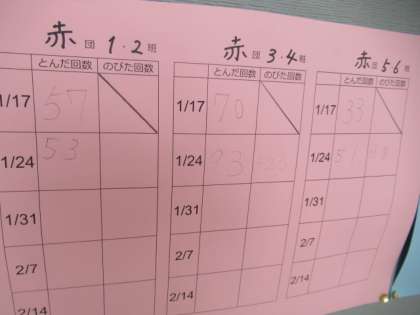 赤団 1・2班
とんだ回数 のびた回数
1/17 57
1/24 53
1/31
2/7
2/14
赤団 3・4班
とんだ回数 のびた回数
1/17 70
1/24
1/31
2/7
2/14
赤団 5 6班
とんだ回数 のびた回数
1/17 33
1/24
1/31
2/7
2/14